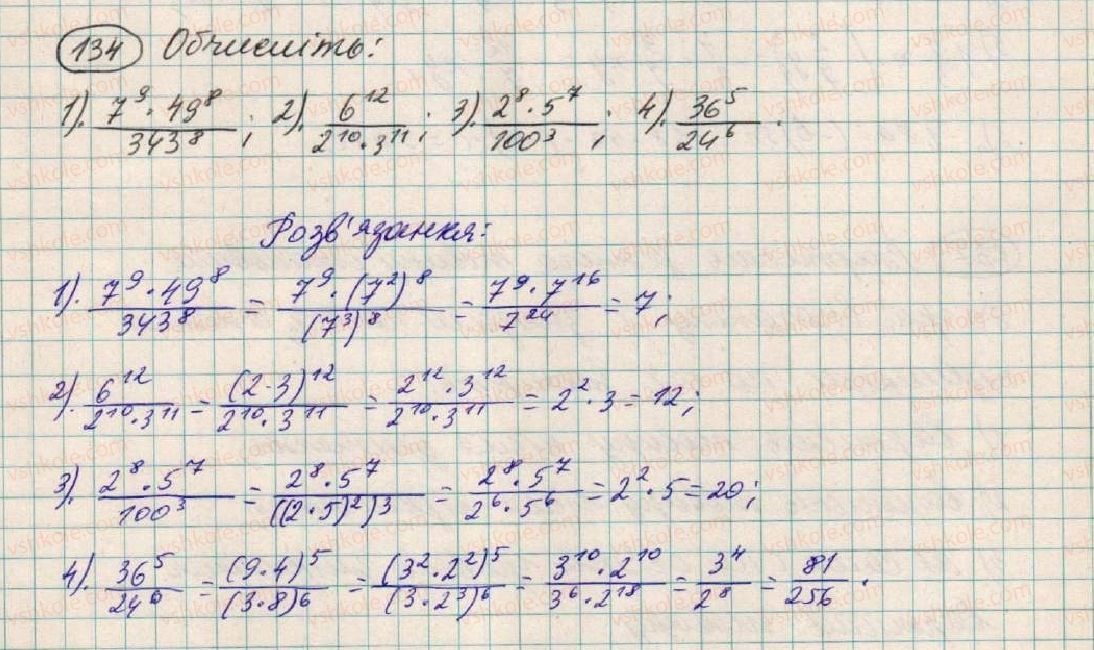 134 Обчисліть:
1). 7⁹·49⁸/343⁸; 2). 6¹²/2¹⁰·3¹¹; 3). 2⁸·5⁷/100³; 4). 36⁵/24⁶.
Розв'язання:
1). 7⁹·49⁸/343⁸ = 7⁹·(7²)⁸/(7³)⁸ = 7⁹·7¹⁶/7²⁴ = 7;
2). 6¹²/2¹⁰·3¹¹ = (2·3)¹²/2¹⁰·3¹¹ = 2¹²·3¹²/2¹⁰·3¹¹ = 2²·3 = 12;
3). 2⁸·5⁷/100³ = 2⁸·5⁷/((2·5)²)³ = 2⁸·5⁷/2⁶·5⁶ = 2²·5 = 20;
4). 36⁵/24⁶ = (9·4)⁵/(3·8)⁶ = (3²·2²)⁵/(3·2³)⁶ = 3¹⁰·2¹⁰/3⁶·2¹⁸ = 3⁴/2⁸ = 81/256.